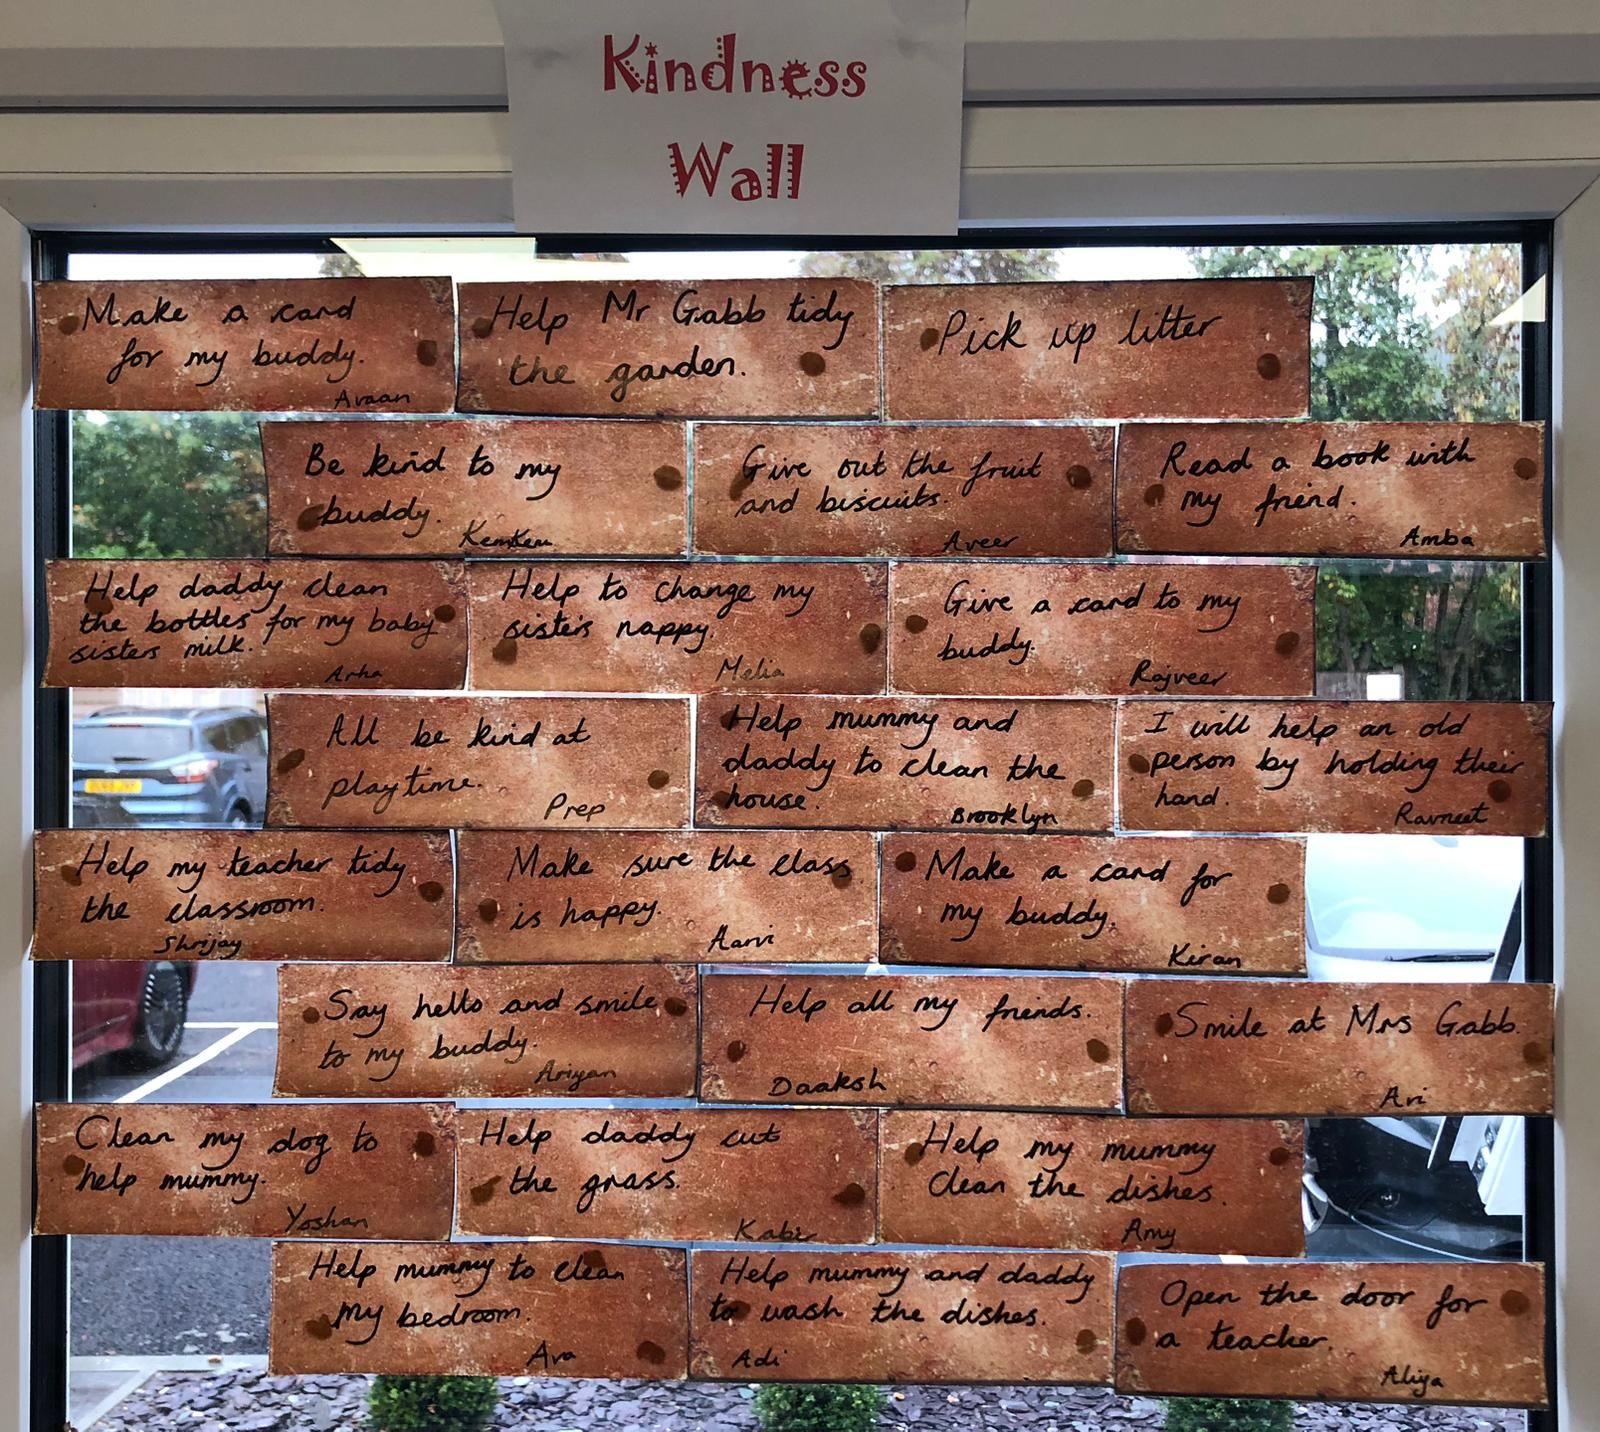 Kindness
Wall
Make a card
for my buddy.
Avaan
Help Mr Gabb tidy
the garden.
Pick up litter
Be kind to my
buddy.
Give out the fruit
and biscuits.
Aveer
Read a book with
my friend.
Amba
Help daddy clean
the bottles for my baby
sisters milk.
Arha
Help to change my
sisters nappy.
Melia
Give a card to my
buddy.
Rajveer
All be kind at
playtime.
Prep
Help mummy and
daddy to clean the
house.
Brooklyn
I will help an old
person by holding their
hand.
Ravneet
Help my teacher tidy
the classroom.
Shrijay
Make sure the class
is happy.
Aarvi
Make a card for
my buddy.
Kiran
Say hello and smile
to my buddy.
Ariyan
Help all my friends.
Daaksh
Smile at Mrs Gabb.
Ari
Clean my dog to
help mummy.
Yoshan
Help daddy cut
the grass.
Kabir
Help my mummy
clean the dishes.
Amy
Help mummy to clean
my bedroom.
Ava
Help mummy and daddy
to wash the dishes.
Adi
Open the door for
a teacher.
Aliya